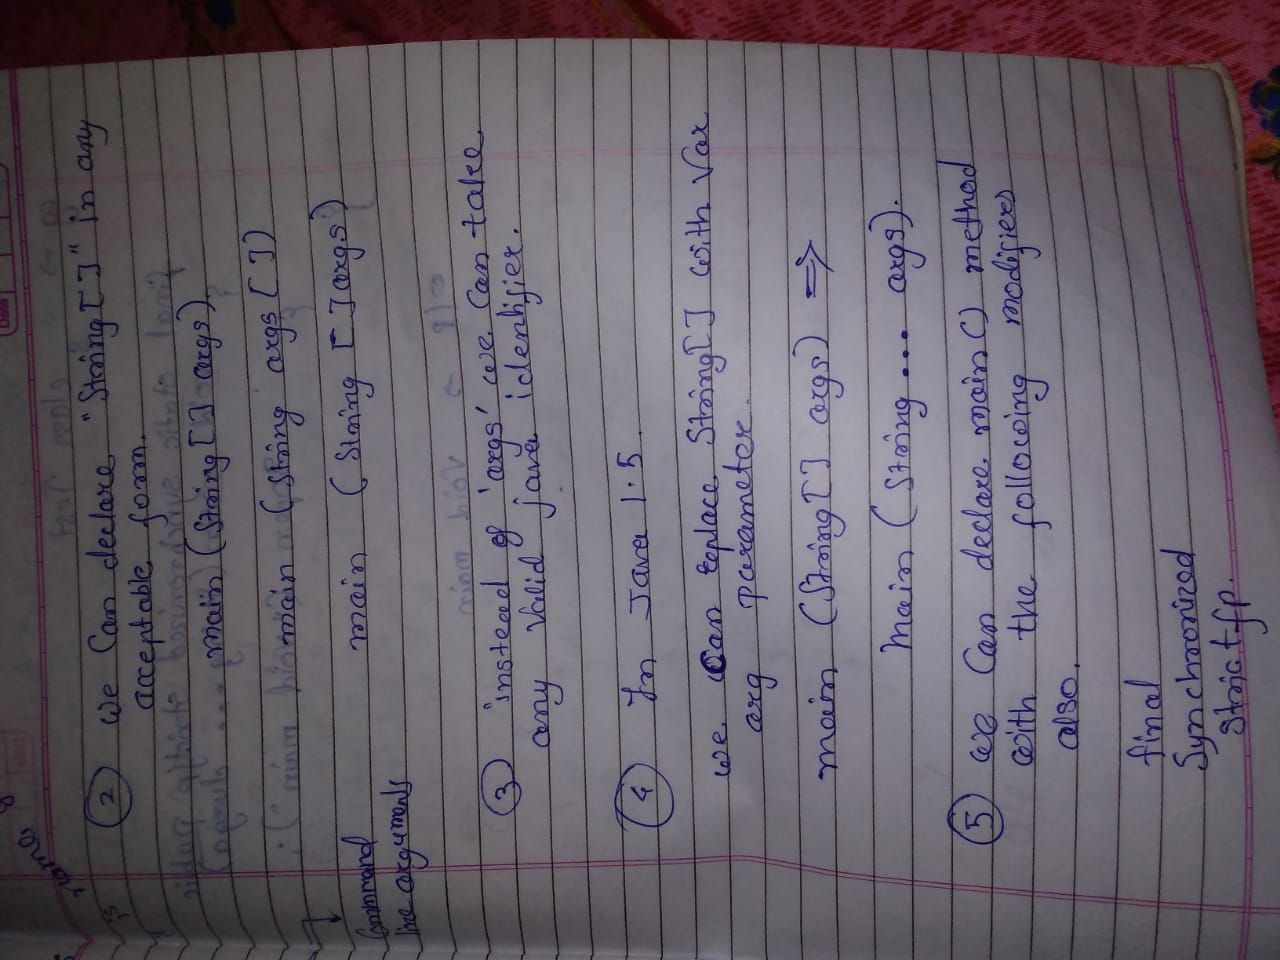 ② we Can declare "String[]" in any
acceptable form.
main(String[] args)
main (String args[])
main (String []args)
Command
line arguments
③ instead of 'args' we can take
any valid java identifier.
④ In Java 1.5
we can replace String[] with Var
arg parameter.
main (String[] args) ⇒
main (String... args).
⑤ we Can declare main() method
with the following modifiers
also.
final
Synchronized
Strictfp.